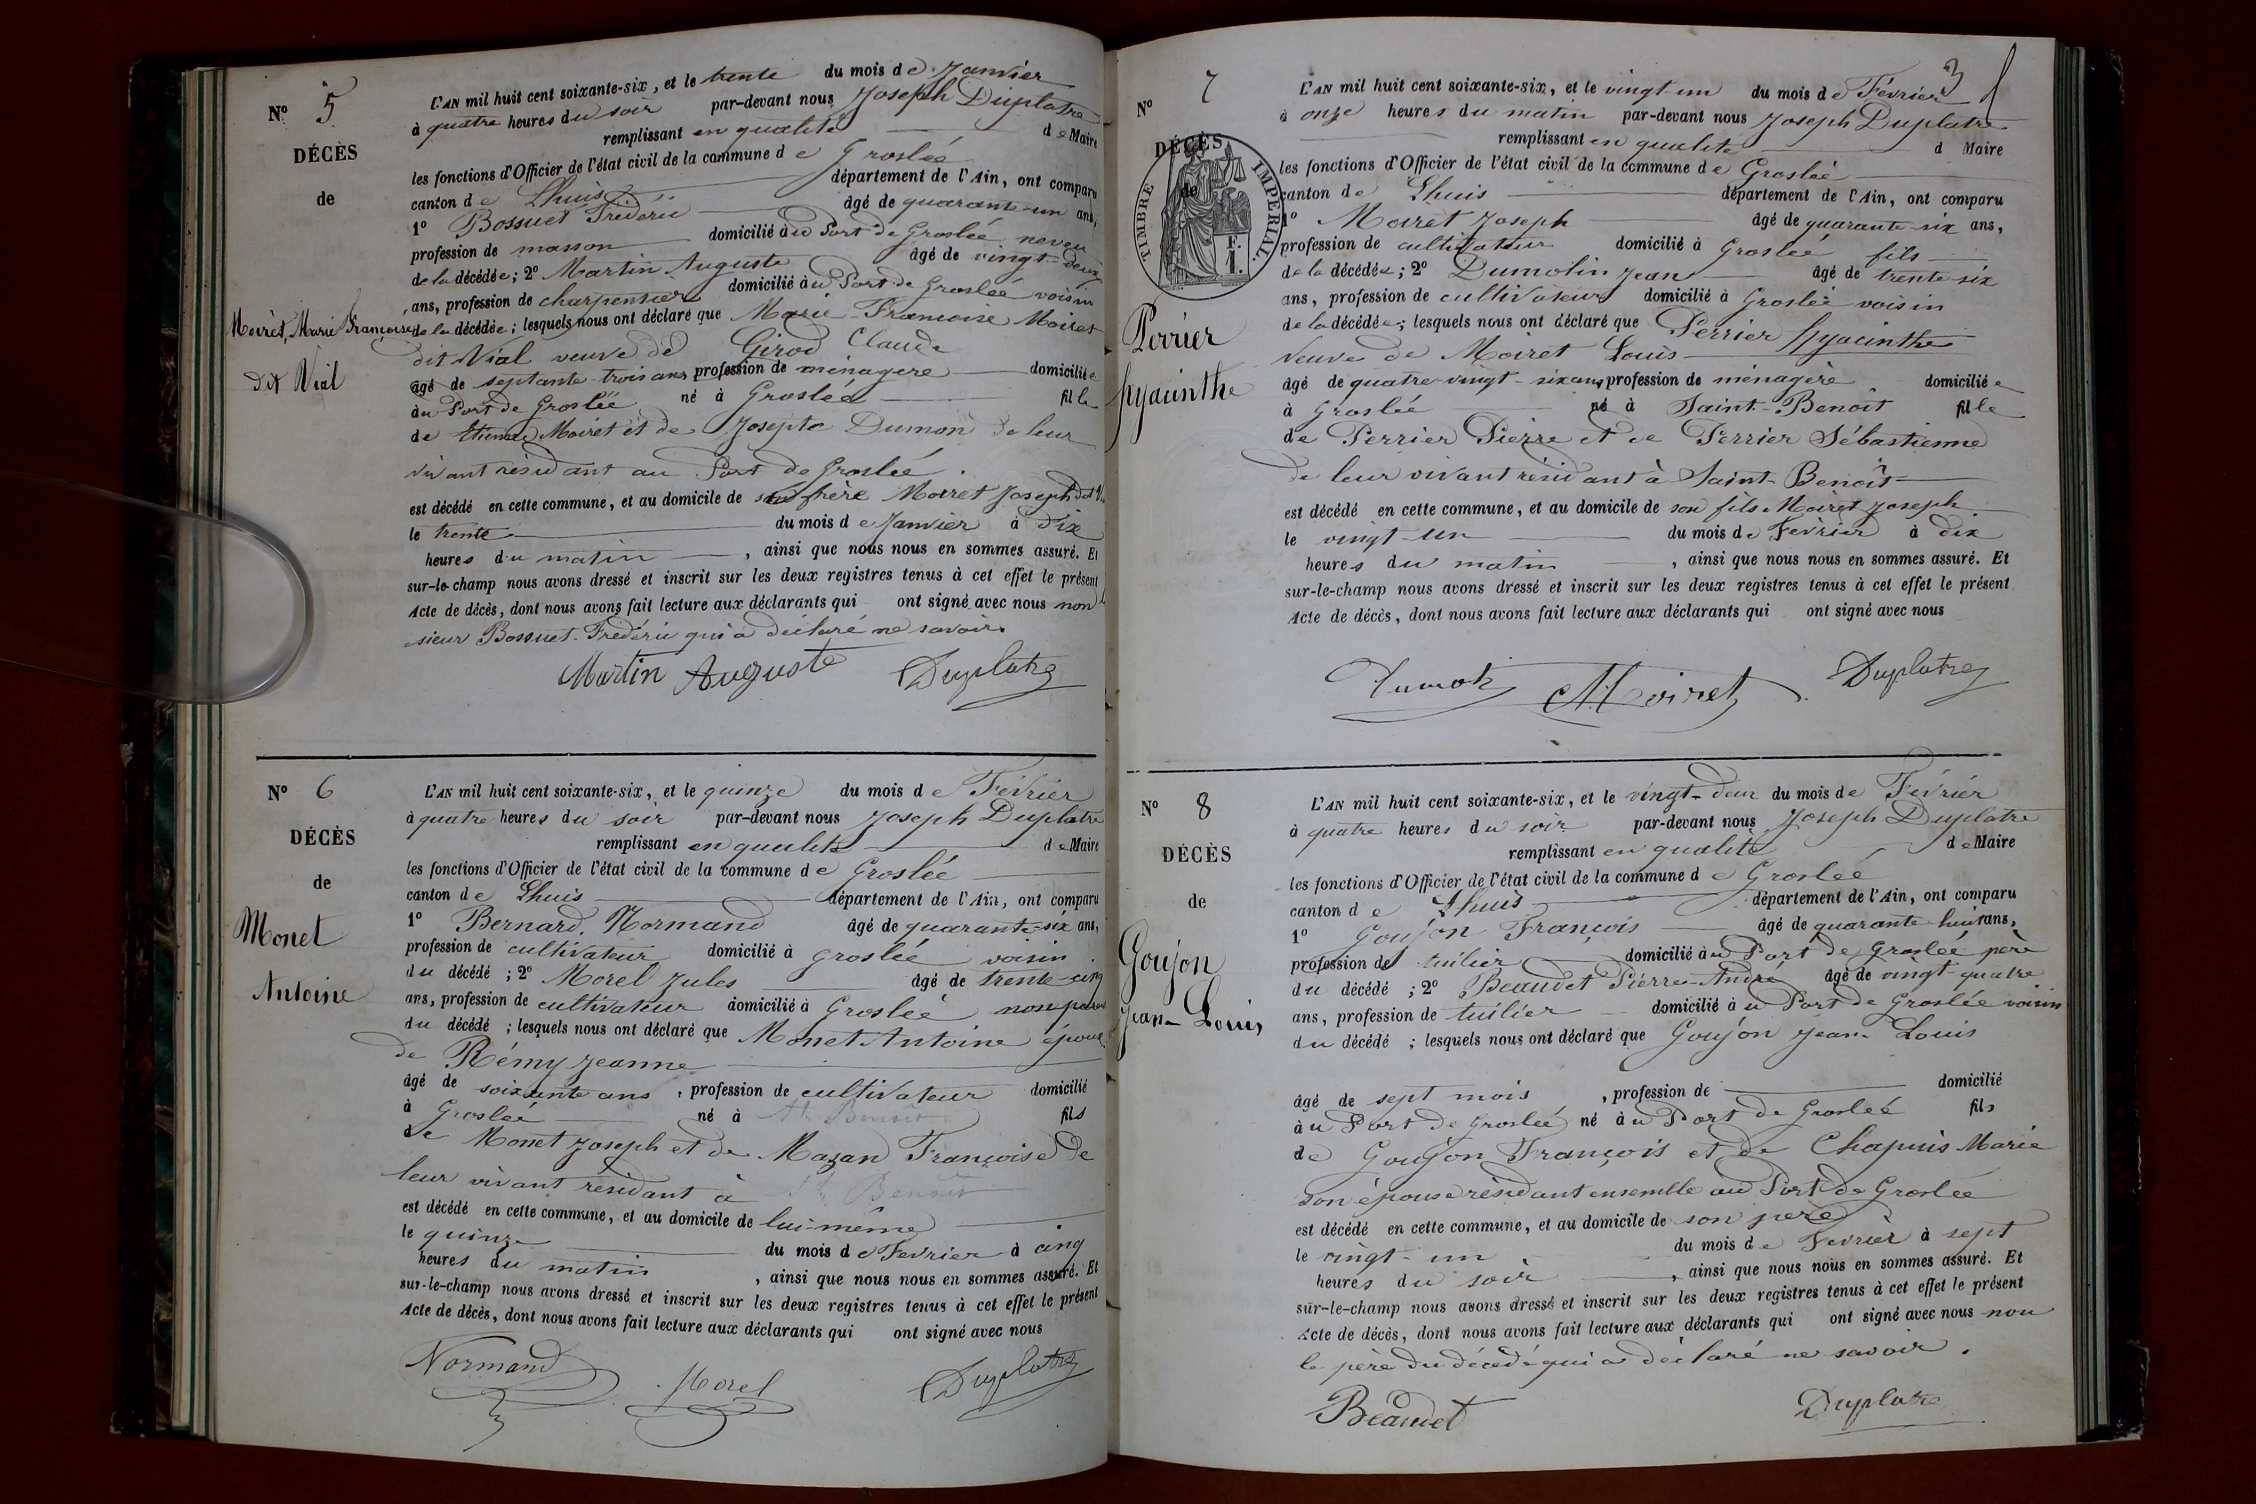 N° 5
DÉCÈS
de
Moirèt, Marie Françoise
dit Vial
L'AN mil huit cent soixante-six, et le trente du mois de Janvier
à quatre heures du soir par-devant nous Joseph Duplatre
remplissant en qualité de Maire
les fonctions d'Officier de l'état civil de la commune de Groslée
canton de Lhuis département de l'Ain, ont comparu
1° Bossuet Frédéric âgé de quarante-un ans,
profession de masson domicilié au Port de Groslée neveu
de la décédée; 2° Martin Auguste âgé de vingt-deux
ans, profession de charpentier domicilié au Port de Groslée voisin
de la décédée; lesquels nous ont déclaré que Marie Françoise Moiret
dit Vial veuve de Girod Claude
âgé de septante-trois ans profession de ménagère domiciliée
au Port de Groslée né à Groslée fille
de Etienne Moiret et de Josepte Dumon de leur
vivant résidant au Port de Groslée.
est décédé en cette commune, et au domicile de son frère Moiret Joseph dit
le trente du mois de Janvier à dix
heures du matin, ainsi que nous nous en sommes assuré. Et
sur-le-champ nous avons dressé et inscrit sur les deux registres tenus à cet effet le présent
Acte de décès, dont nous avons fait lecture aux déclarants qui ont signé avec nous non le
sieur Bossuet Frédéric qui a déclaré ne savoir.
Martin Auguste Duplatre
N° 6
DÉCÈS
de
Monet
Antoine
L'AN mil huit cent soixante-six, et le quinze du mois de Février
à quatre heures du soir par-devant nous Joseph Duplatre
remplissant en qualité de Maire
les fonctions d'Officier de l'état civil de la commune de Groslée
canton de Lhuis département de l'Ain, ont comparu
1° Bernard Normand âgé de quarante-six ans,
profession de cultivateur domicilié à Groslée voisin
du décédé; 2° Morel Jules âgé de trente-cinq
ans, profession de cultivateur domicilié à Groslée non parent
du décédé; lesquels nous ont déclaré que Monet Antoine époux
de Rémy Jeanne
âgé de soixante ans, profession de cultivateur domicilié
à Groslée né à St Benoit fils
de Monet Joseph et de Mazan Françoise de
leur vivant résidant à St Benoit
est décédé en cette commune, et au domicile de lui-même
le quinze du mois de Fevrier à cinq
heures du matin, ainsi que nous nous en sommes assuré. Et
sur-le-champ nous avons dressé et inscrit sur les deux registres tenus à cet effet le présent
Acte de décès, dont nous avons fait lecture aux déclarants qui ont signé avec nous
Normand Morel Duplatre
3
N° 7
DÉCÈS
de
TIMBRE IMPERIAL.
Perrier
hyacinthe
L'AN mil huit cent soixante-six, et le vingt-un du mois de Février
à onze heures du matin par-devant nous Joseph Duplatre
remplissant en qualité d Maire
les fonctions d'Officier de l'état civil de la commune de Groslée
canton de Lhuis département de l'Ain, ont comparu
1° Moiret Joseph âgé de quarante-six ans,
profession de cultivateur domicilié à Groslée fils
de la décédée; 2° Dumolin Jean âgé de trente-six
ans, profession de cultivateur domicilié à Groslée voisin
de la décédée; lesquels nous ont déclaré que Perrier hyacinthe
veuve de Moiret Louis
âgé de quatre-vingt-six ans profession de ménagère domiciliée
à Groslée né à Saint-Benoit fille
de Perrier Pierre et de Perrier Sébastienne
de leur vivant résidant à Saint-Benoît
est décédé en cette commune, et au domicile de son fils Moiret Joseph
le vingt-un du mois de Fevrier à dix
heures du matin, ainsi que nous nous en sommes assuré. Et
sur-le-champ nous avons dressé et inscrit sur les deux registres tenus à cet effet le présent
Acte de décès, dont nous avons fait lecture aux déclarants qui ont signé avec nous
Moiret Duplatre
N° 8
DÉCÈS
de
Goujon
Jean-Louis
L'AN mil huit cent soixante-six, et le vingt-deux du mois de Février
à quatre heures du soir par-devant nous Joseph Duplatre
remplissant en qualité de Maire
les fonctions d'Officier de l'état civil de la commune de Groslée
canton de Lhuis département de l'Ain, ont comparu
1° Goujon François âgé de quarante-huit ans,
profession de tuilier domicilié au Port de Groslée père
du décédé; 2° Beaudet Pierre-André âgé de vingt-quatre
ans, profession de tuilier domicilié au Port de Groslée voisin
du décédé; lesquels nous ont déclaré que Goujon Jean-Louis
âgé de sept mois, profession de domicilié
au Port de Groslée né au Port de Groslée fils
de Goujon François et de Chapuis Marie
son épouse résidant ensemble au Port de Groslée
est décédé en cette commune, et au domicile de son père
le vingt-un du mois de Fevrier à sept
heures du soir, ainsi que nous nous en sommes assuré. Et
sur-le-champ nous avons dressé et inscrit sur les deux registres tenus à cet effet le présent
Acte de décès, dont nous avons fait lecture aux déclarants qui ont signé avec nous non
le père du décédé qui a déclaré ne savoir.
Beaudet Duplatre